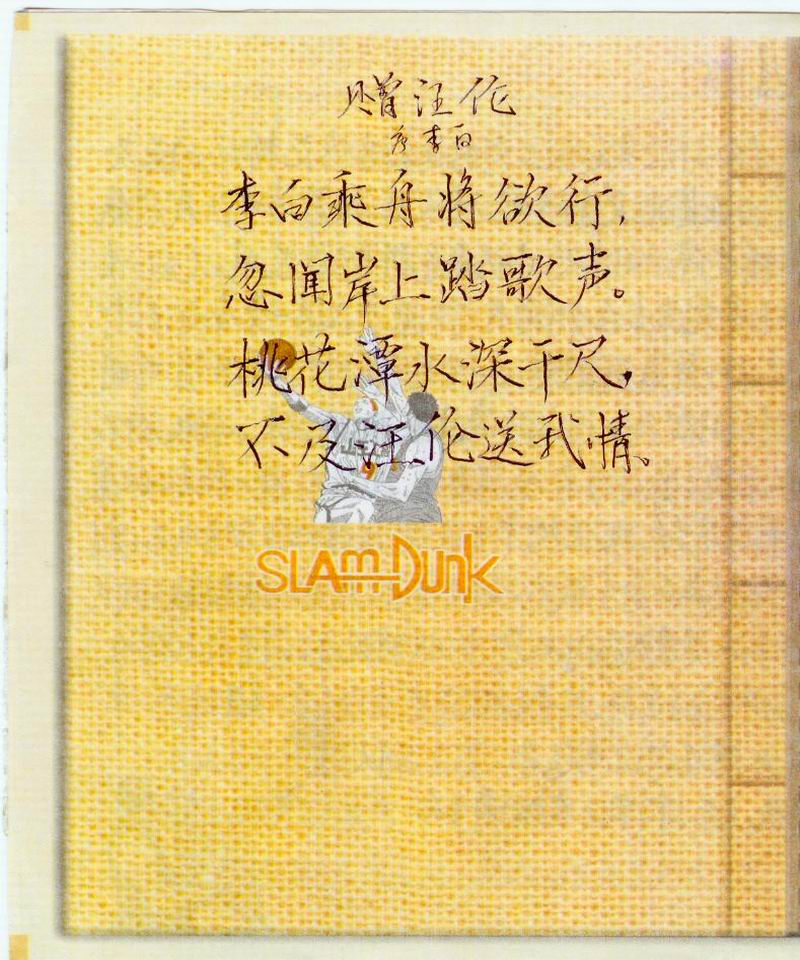 赠汪伦
唐李白
李白乘舟将欲行,
忽闻岸上踏歌声。
桃花潭水深千尺,
不及汪伦送我情。
SLAM DUNK